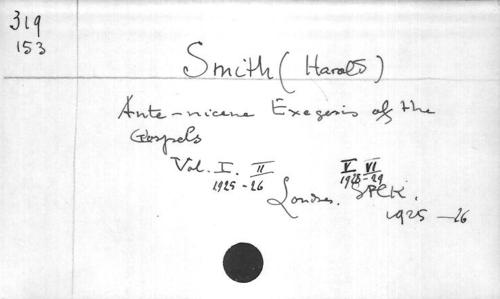 319
153
Smith (Harold)
Ante-nicene Exegesis of the
Gospels
Vol. I. II V VI
1925-26 1928-29
Londres. SPCK.
1925-26